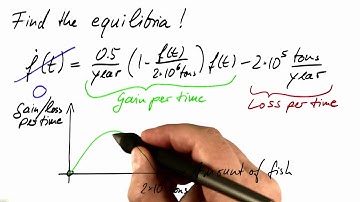 Find the equilibria!
ḟ(t) = 0.5/year (1 - f(t)/2·10⁶tons) f(t) - 2·10⁵ tons/year
0
Gain per time
Loss per time
gain/loss
per time
amount of fish
2·10⁶ tons